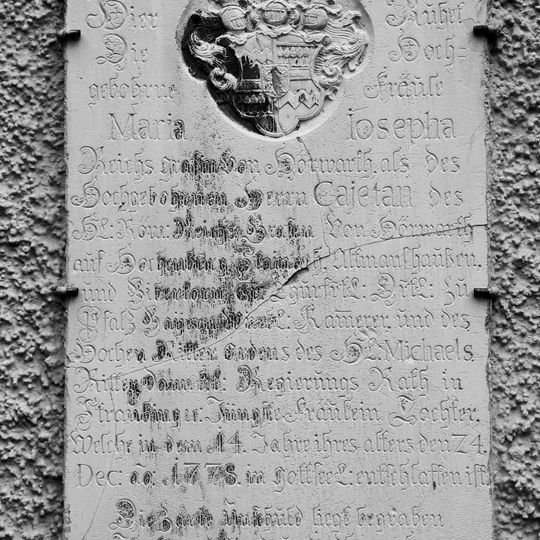 Hier Ruhet
Die Hoch-
gebohrne Fräule
Maria Iosepha
Reichs gräfin von Hörwarth, als des
Hochgebohrnen Herrn Cajetan des
HL: Röm: Reichs Grafen Von Hörwarth
auf Hochenburg, Allmanßhaußen,
und
Pfalz Bayern Kamerer, und des
Hochen Ritter ordens des HL: Michaels
Ritter, dann Regierungs Rath in
Straubing Jüngste Fräulein Tochter,
Welche in dem 14. Jahre ihres alters den 24.
Dec: ao. 1778. in Gott seel: entschlaffen ist.
Die hier liegt begraben